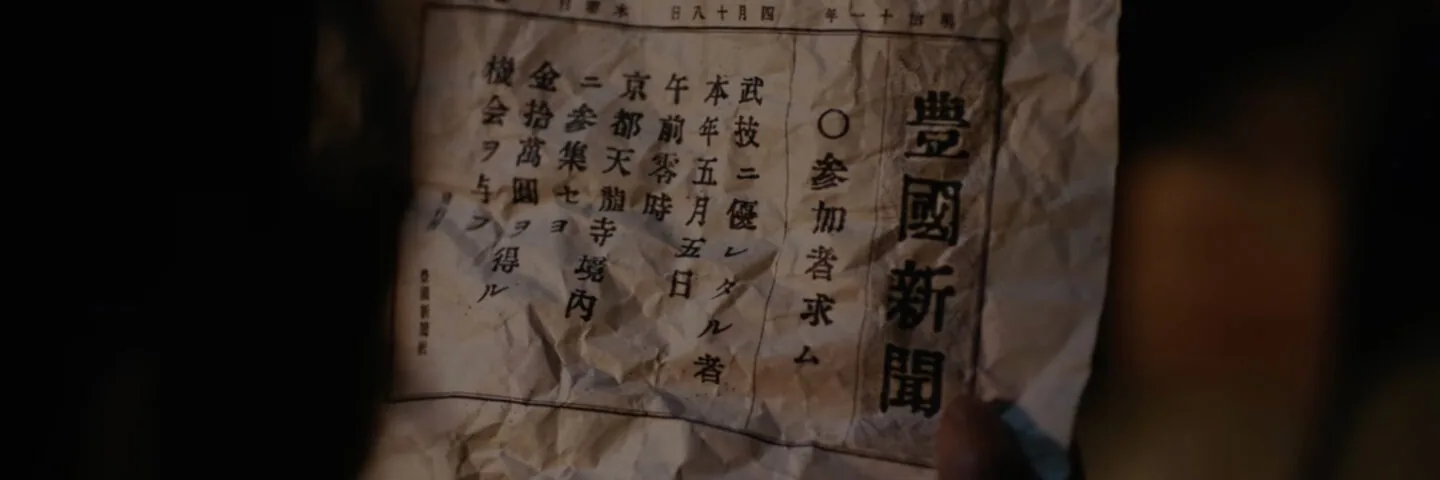 明治十一年 四月十八日 木曜日
豊國新聞
〇参加者求ム
武技ニ優レタル者
本年五月五日
午前零時
京都天龍寺境内
ニ参集セヨ
金拾萬圓ヲ得ル
機会ヲ与フ
豊國新聞社